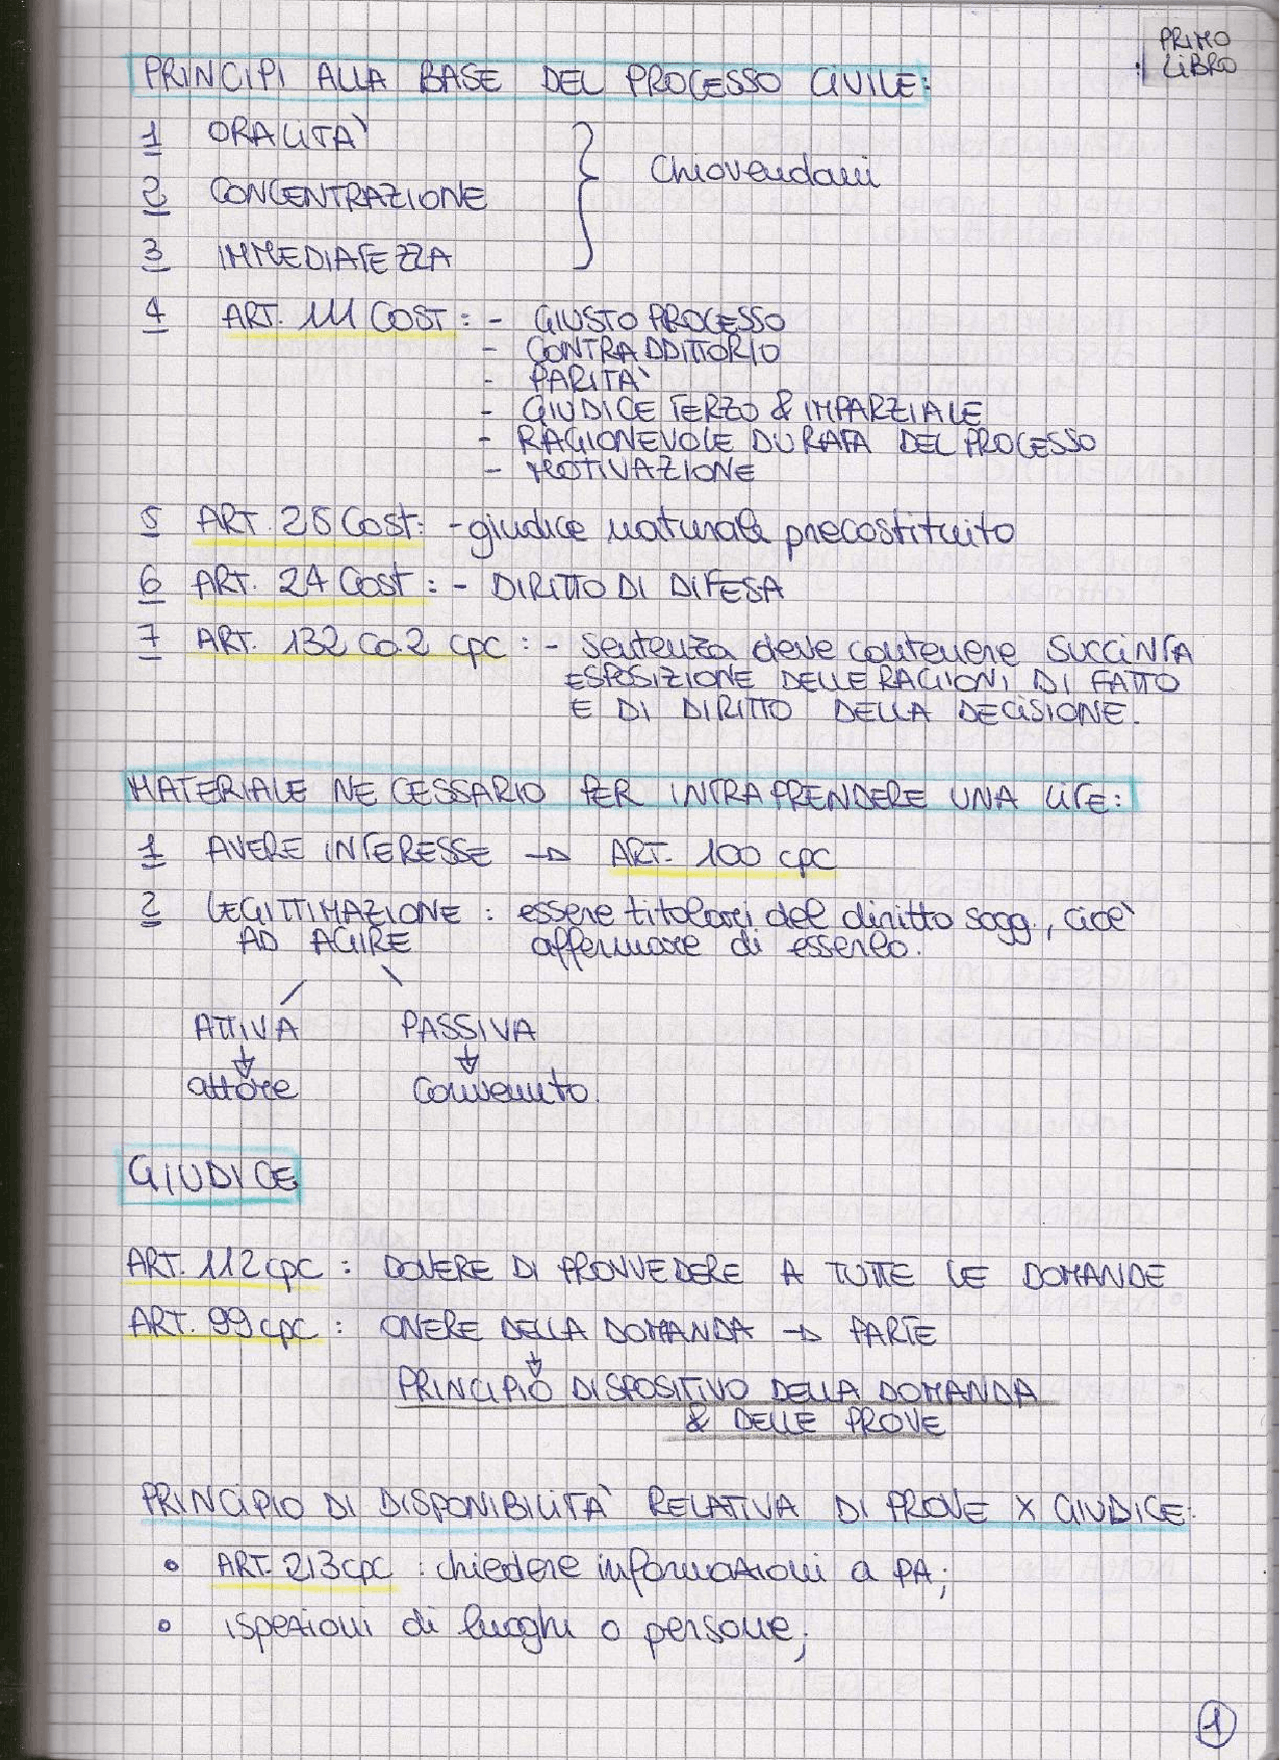 PRIMO
LIBRO
PRINCIPI ALLA BASE DEL PROCESSO CIVILE:
1 ORALITA'
2 CONCENTRAZIONE
3 IMMEDIATEZZA
Chiovendani
4 ART. 111 COST: - GIUSTO PROCESSO
- CONTRADDITTORIO
- PARITA'
- GIUDICE TERZO & IMPARZIALE
- RAGIONEVOLE DURATA DEL PROCESSO
- MOTIVAZIONE
5 ART. 25 Cost: - giudice naturale precostituito
6 ART. 24 Cost: - DIRITTO DI DIFESA
7 ART. 132 co.2 cpc: - sentenza deve contenere SUCCINTA
ESPOSIZIONE DELLE RAGIONI DI FATTO
E DI DIRITTO DELLA DECISIONE.
MATERIALE NECESSARIO PER INTRAPRENDERE UNA LITE:
1 AVERE INTERESSE → ART. 100 cpc
2 LEGITTIMAZIONE : essere titolari del diritto sogg., cioè
AD AGIRE affermare di esserlo.
ATTIVA PASSIVA
↓ ↓
attore convenuto.
GIUDICE
ART. 112 cpc : DOVERE DI PROVVEDERE A TUTTE LE DOMANDE
ART. 99 cpc : ONERE DELLA DOMANDA → PARTE
↓
PRINCIPIO DISPOSITIVO DELLA DOMANDA
& DELLE PROVE
PRINCIPIO DI DISPONIBILITA' RELATIVA DI PROVE X GIUDICE:
• ART. 213 cpc : chiedere informazioni a PA;
• ispezioni di luoghi o persone;
1